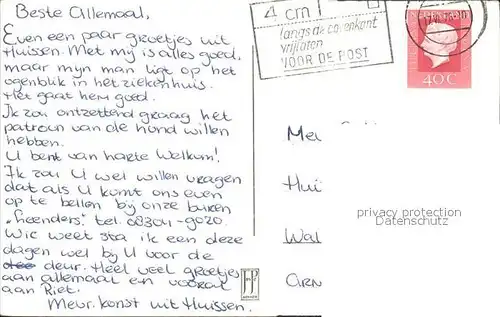 Beste Allemaal,
Even een paar groetjes uit
Huissen. Met mij is alles goed,
maar mijn man ligt op het
ogenblik in het ziekenhuis.
Het gaat hem goed.
Ik zou ontzettend graag het
patroon van de hond willen
hebben.
U bent van harte Welkom!
Ik zou U wel willen vragen
dat als U komt ons even
op te bellen bij onze buren
"Leenders" tel. 08304-9020.
Wie weet sta ik een deze
dagen wel bij U voor de
deur. Heel veel groetjes
aan allemaal en vooral
aan Riet.
Mevr. Konst uit Huissen.
4 cm
langs de bovenkant
vrijlaten
VOOR DE POST
NEDERLAND
40 C
Me
Hui
Wal
Arn
privacy protection
Datenschutz